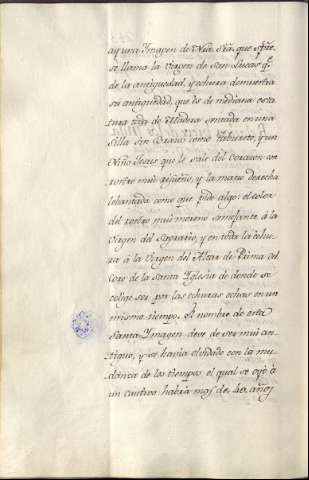 ay una Ymagen de Nra. Sra. que spre.
se llama la Virgen de Sen Lucas ql.
de la antiguedad, y echura demuestra
su antiguedad, que es de mediana esta
tura toda de Madera sentada en una
Silla sin brazos como taburete, y un
Niño Jesus que le sale del Corazon con
rostro mui risueño, y la mano derecha
lebantada como que pide algo: el color
del rostro mui moreno semejante á la
Virgen del Sagrario, y en toda la echu
ra á la Virgen del Altar de Prima del
Coro de la Santa Yglesia de donde se
colige ser por las echuras echas en un
mismo tiempo. El nombre de esta
Santa Ymagen deve de ser mui an
tiguo, y se havia olvidado con la mu
danza de los tiempos, el qual se oyó á
un cautivo habrá mas de 40. años